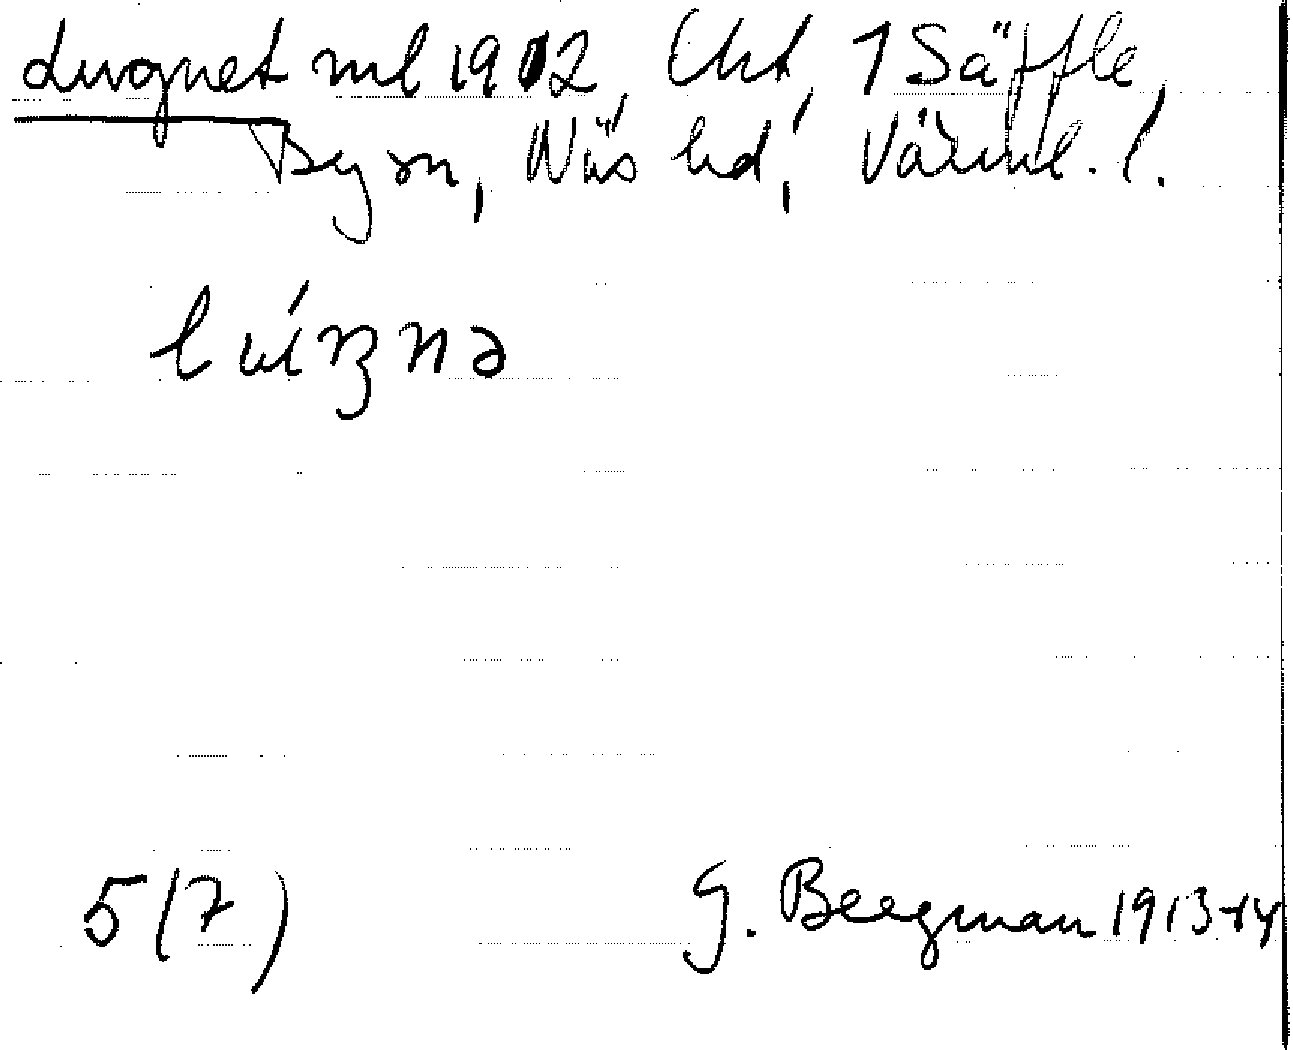 Lugnet ml 1902, Uht, 1 Säffle,
By sn, Näs hd, Värml. l.
5(7)
G. Bergman 1913-14